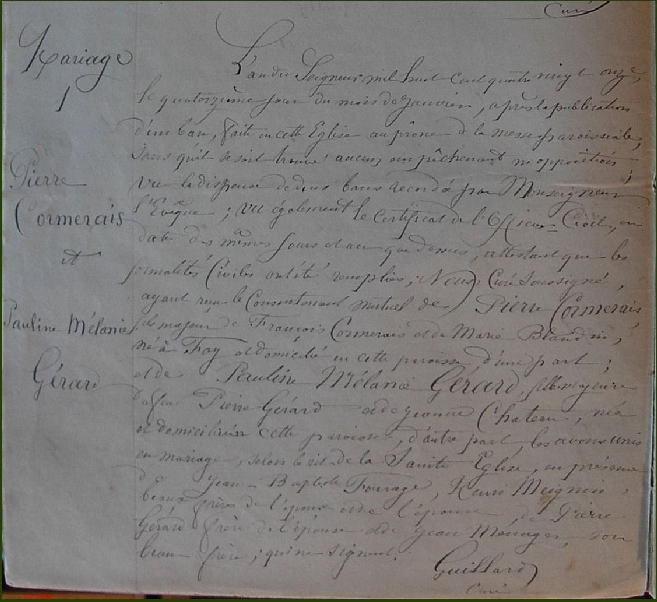 Curé
Mariage
Pierre
Cormerais
et
Pauline Mélanie
Gérard
L'an du Seigneur mil huit cent quatre vingt onze,
le quatorzième jour du mois de janvier, après la publication
d'un ban, faite en cette Eglise au prône de la messe paroissiale,
sans qu'il se soit trouvé aucun empêchement ni opposition,
vu la dispense de deux bans accordé par Monseigneur
l'Evêque ; vu également le certificat de l'Officier Civil, en
date des mêmes jours et an que dessus, attestant que les
formalités Civiles ont été remplies, Nous Curé soussigné,
ayant reçu le Consentement mutuel de Pierre Cormerais
fils majeur de François Cormerais et de Marie Blandin,
né à Fay et domicilié en cette paroisse, d'une part ;
et de Pauline Mélanie Gérard, fille majeure
de feu Pierre Gérard et de Jeanne Chateau, née
et domiciliée en cette paroisse, d'autre part, les avons unis
en mariage, selon le rit de la Sainte Eglise, en présence
de Jean-Baptiste Fourage, Henri Meignen,
beaux frères de l'époux et de l'épouse, de Pierre
Gérard frère de l'épouse et de Jean Ménager, son
beau frère ; qui ne signent.
Guillard
Curé